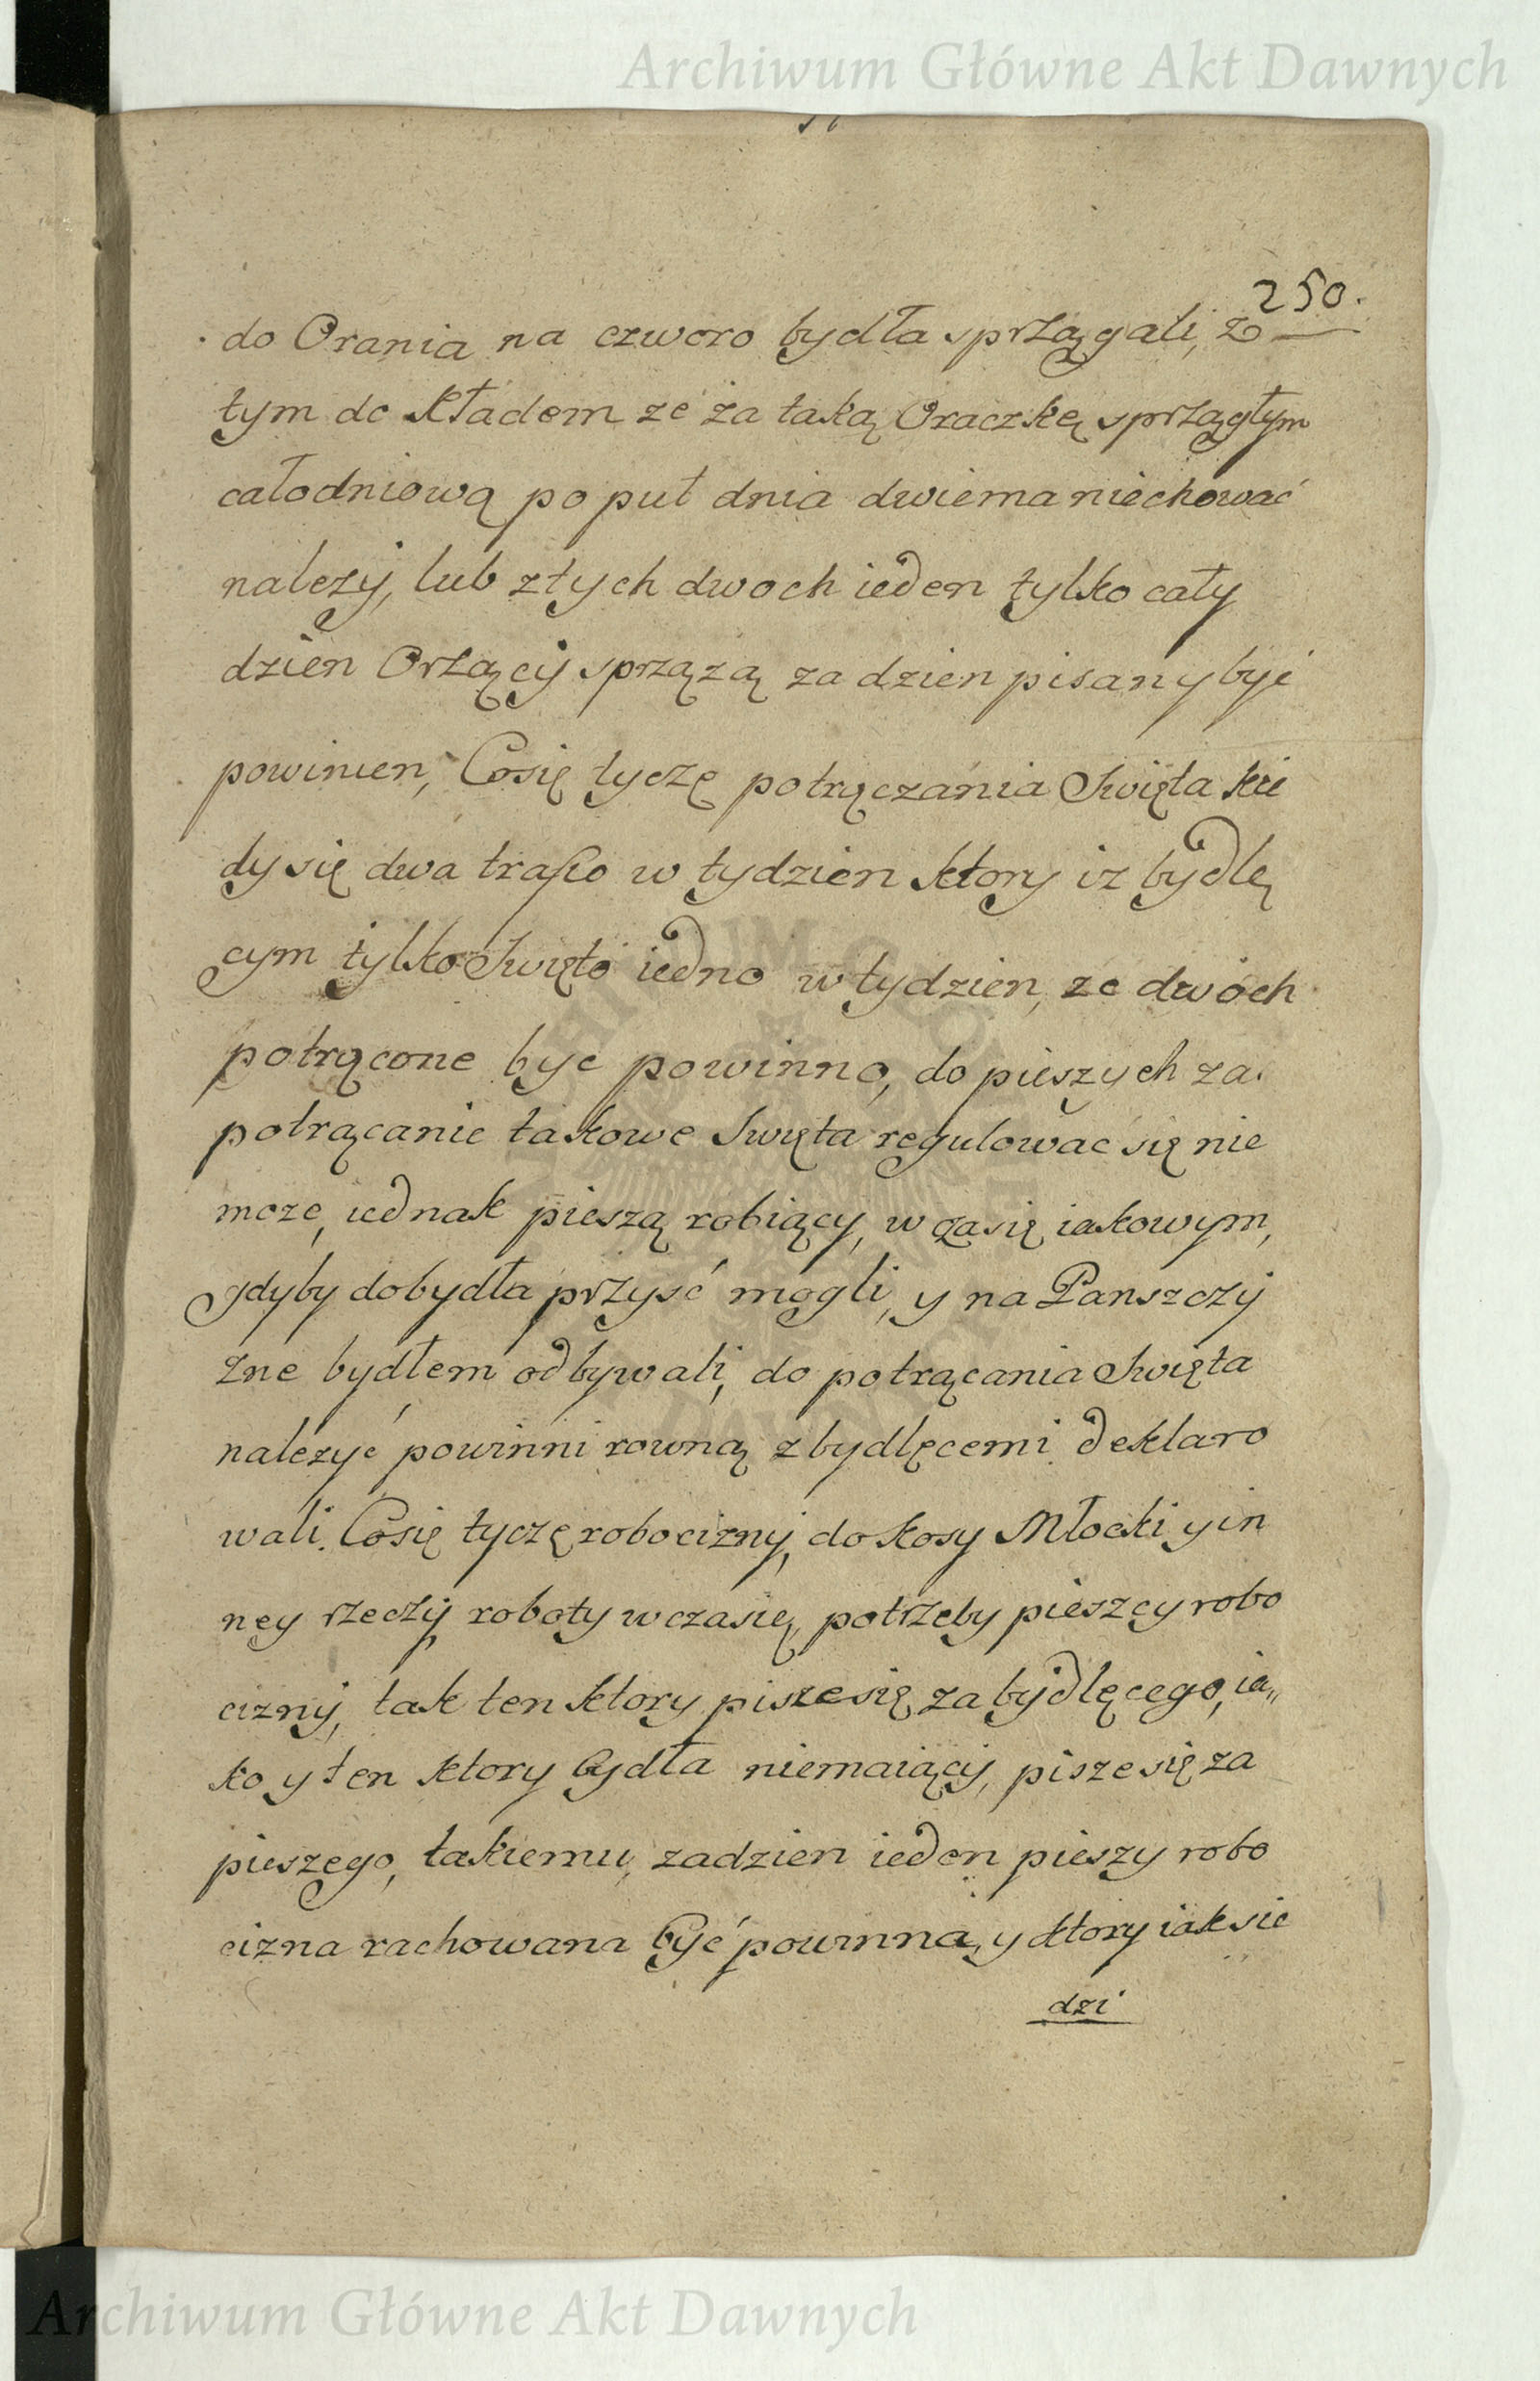 Archiwum Główne Akt Dawnych
250.
do Orania na czworo bydła sprzągali, z
tym do kładem ze za taką Oraczkę sprzągłym
całodniową po puł dnia dwiema niechować
nalezy, lub ztych dwoch ieden tylko cały
dzien Orzący sprzązą za dzien pisany być
powinien, Cosię tyczę potrączania Swięta kie
dy się dwa trafio w tydzien ktory iz bydlę
cym tylko Swięto iedno w tydzien, ze dwoch
potrącone byc powinno, do pieszych za
potrącanie takowe Swięta regulowac się nie
moze, iednak pieszą robiący, w czasię iakowym,
gdyby dobydła przyść mogli, y na Panszczy
zne bydłem odbywali, do potrącania Swięta
nalezyć powinni rowną z bydlęcemi deklaro
wali. Cosię tyczę robocizny, do kosy Młocki y in
ney rzeczy roboty wczasię, potrzeby pieszey robo
cizny, tak ten ktory piszesię za bydlęcego, ia„
ko y ten ktory bydła niemaiący, pisze się za
pieszego, takiemu, zadzien ieden pieszy robo
cizna rachowana być powinna, y ktory iak sie
dzi
Archiwum Główne Akt Dawnych